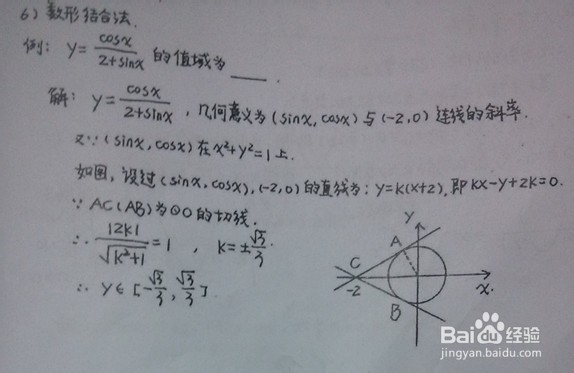 6) 数形结合法.
例: y = cosx / 2+sinx 的值域为 ___.
解: y = cosx / 2+sinx , 几何意义为 (sinx, cosx) 与 (-2, 0) 连线的斜率.
又∵ (sinx, cosx) 在 x²+y²=1 上.
如图, 设过 (sinx, cosx), (-2, 0) 的直线为: y=k(x+2), 即 kx-y+2k=0.
∵ AC(AB)为⊙O的切线.
∴ |2k| / √k²+1 = 1 , k=±√3/3.
∴ y∈[-√3/3, √3/3]
y
A
C
-2
x.
B
Bai du 经验
jingyan.baidu.com